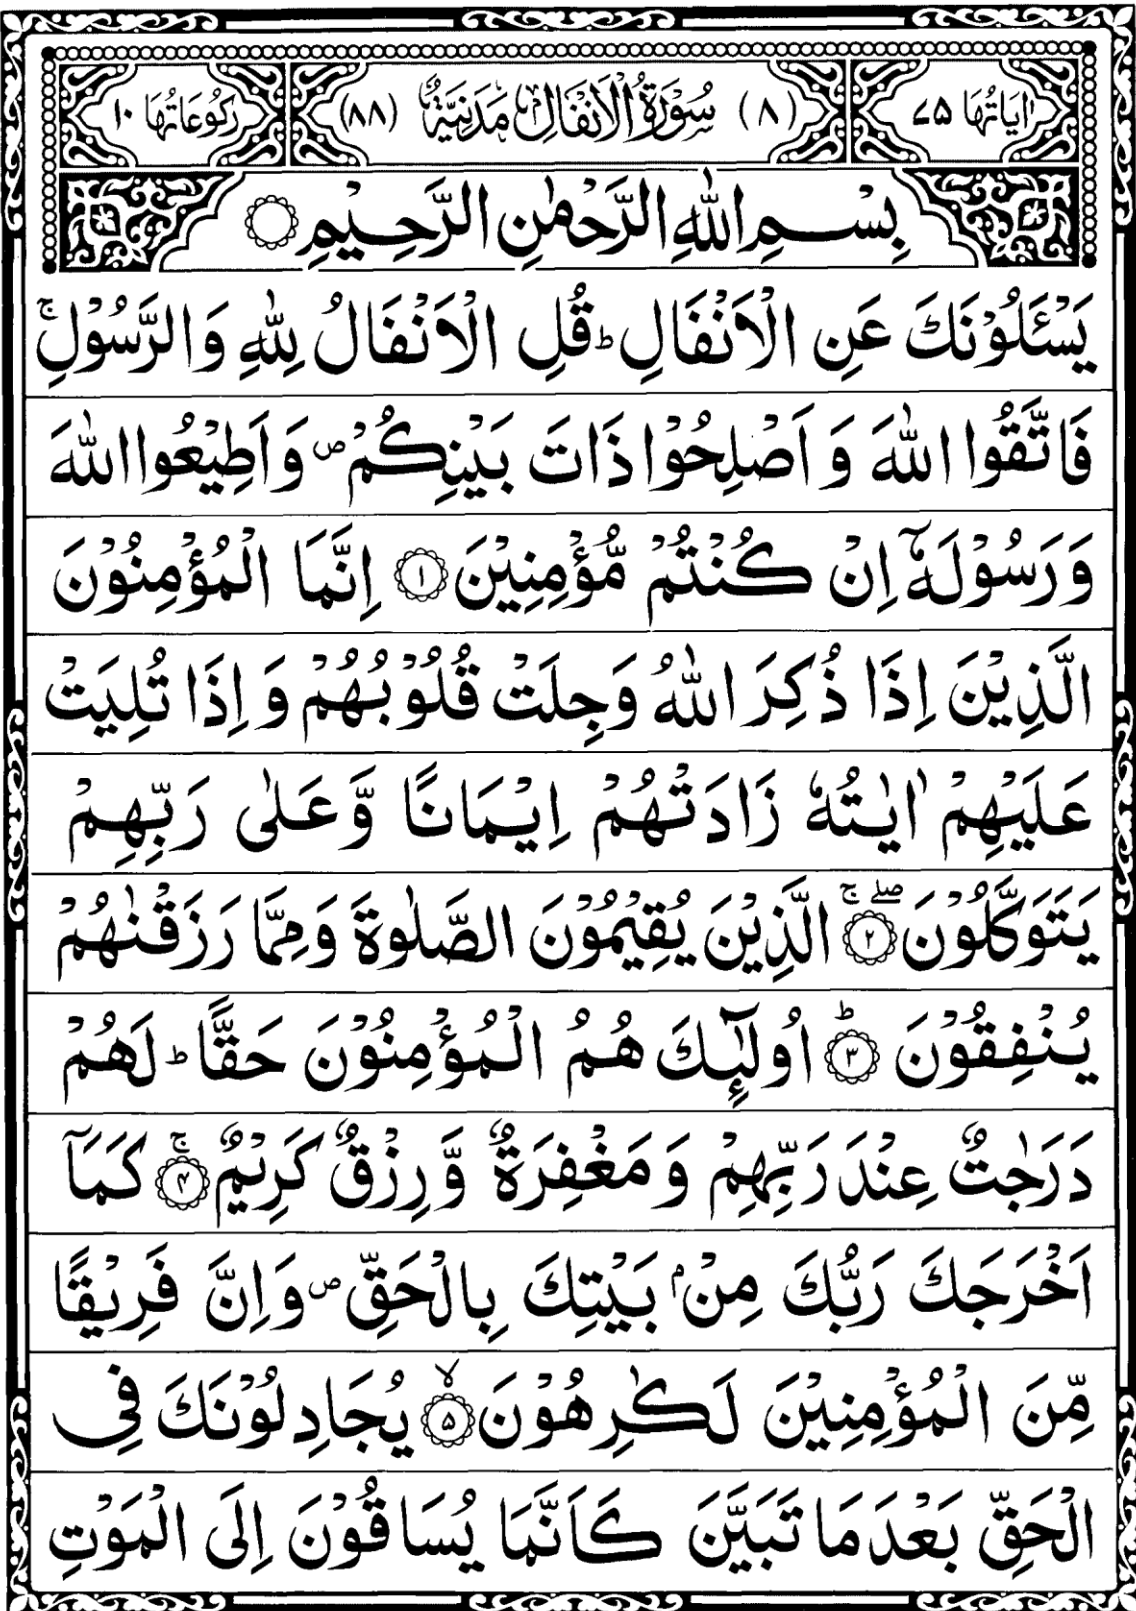 اٰيَاتُهَا ٧٥ (٨) سُوْرَةُ الْاَنْفَالِ مَدَنِيَّةٌ (٨٨) رُكُوْعَاتُهَا ١٠
بِسْمِ اللّٰهِ الرَّحْمٰنِ الرَّحِيْمِ
يَسْـَٔلُوْنَكَ عَنِ الْاَنْفَالِ ؕ قُلِ الْاَنْفَالُ لِلّٰهِ وَالرَّسُوْلِ ۚ
فَاتَّقُوا اللّٰهَ وَ اَصْلِحُوْا ذَاتَ بَيْنِكُمْ ۪ وَاَطِيْعُوا اللّٰهَ
وَ رَسُوْلَهٗۤ اِنْ كُنْتُمْ مُّؤْمِنِيْنَ ۝١ اِنَّمَا الْمُؤْمِنُوْنَ
الَّذِيْنَ اِذَا ذُكِرَ اللّٰهُ وَجِلَتْ قُلُوْبُهُمْ وَ اِذَا تُلِيَتْ
عَلَيْهِمْ اٰيٰتُهٗ زَادَتْهُمْ اِيْمَانًا وَّ عَلٰى رَبِّهِمْ
يَتَوَكَّلُوْنَ ۝٢ ۖۚ الَّذِيْنَ يُقِيْمُوْنَ الصَّلٰوةَ وَمِمَّا رَزَقْنٰهُمْ
يُنْفِقُوْنَ ۝٣ؕ اُولٰٓئِكَ هُمُ الْمُؤْمِنُوْنَ حَقًّا ؕ لَهُمْ
دَرَجٰتٌ عِنْدَ رَبِّهِمْ وَ مَغْفِرَةٌ وَّ رِزْقٌ كَرِيْمٌ ۝٤ۚ كَمَاۤ
اَخْرَجَكَ رَبُّكَ مِنْۢ بَيْتِكَ بِالْحَقِّ ۪ وَ اِنَّ فَرِيْقًا
مِّنَ الْمُؤْمِنِيْنَ لَكٰرِهُوْنَ ۝٥ۙ يُجَادِلُوْنَكَ فِى
الْحَقِّ بَعْدَ مَا تَبَيَّنَ كَاَنَّمَا يُسَاقُوْنَ اِلَى الْمَوْتِ